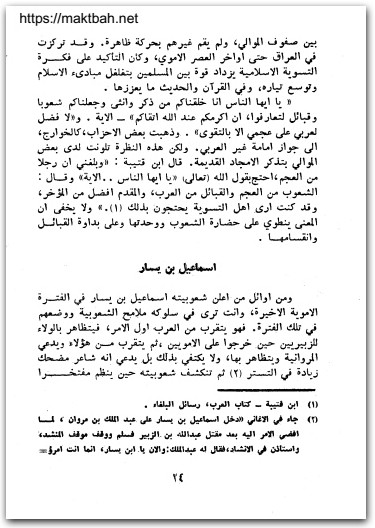 https://maktbah.net
بين صفوف الموالي، ولم يقم غيرهم بحركة ظاهرة. وقد تركزت
في العراق حتى أواخر العصر الاموي، وكان التأكيد على فكرة
التسوية الاسلامية يزداد قوة بين المسلمين بتغلغل مبادىء الاسلام
وتوسع تياره، وفي القرآن والحديث ما يعززها.
« يا ايها الناس انا خلقناكم من ذكر وانثى وجعلناكم شعوبا
وقبائل لتعارفوا، ان اكرمكم عند الله اتقاكم» ــ الاية . و«لا فضل
لعربي على عجمي الا بالتقوى» . وذهبت بعض الاحزاب، كالخوارج،
الى جواز امامة غير العربي. ولكن هذه النظرة تلونت لدى بعض
الموالي بتذكر الامجاد القديمة. قال ابن قتيبة : «وبلغني ان رجلا
من العجم، احتج بقول الله (تعالى) «يا ايها الناس . . الاية» وقال :
الشعوب من العجم والقبائل من العرب، والمقدم افضل من المؤخر،
وقد كنت ارى اهل التسوية يحتجون بذلك (١).» ولا يخفى ان
المعنى ينطوي على حضارة الشعوب ووحدتها وعلى بداوة القبائل
وانقسامها .
اسماعيل بن يسار
ومن اوائل من اعلن شعوبيته اسماعيل بن يسار في الفترة
الاموية الاخيرة، وانت ترى في سلوكه ملامح الشعوبية ووضعهم
في تلك الفترة. فهو يتقرب من العرب اول الامر، فيتظاهر بالولاء
للزبيريين حين خرجوا على الامويين ،ثم يتقرب مـن هؤلاء ويدعي
المروانية ويتظاهر بها، ولا يكتفي بذلك بل يدعي انه شاعر مضحك
زيادة في التستر (٢) ثم تنكشف شعوبيته حين ينظم مفتخـــرا
(١) ابن قتيبة ــ كتاب العرب، رسائل البلغاء .
(٢) جاء في الاغاني «دخل اسماعيل بن يسار على عبد الملك بن مروان ، لما
افضى الامر اليه بعد مقتل عبدالله بن الزبير فسلم ووقف موقف المنشد،
واستأذن في الانشاد، فقال له عبدالملك: والان يا ابن يسار، انما انت امرؤ=
٢٤